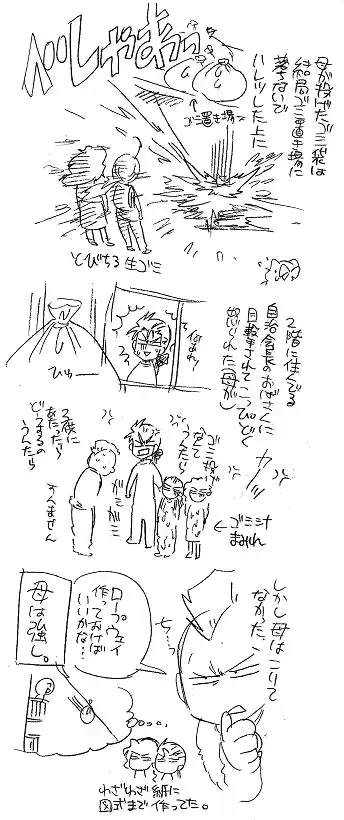 母が投げたゴミ袋は
結局ゴミ置き場に
落ちないで
ハレツした上に
べべしゃあぁっ
ゴミ置き場
とびちる生ゴミ
2階に住んでる
自治会長のおばさんに
目撃されてこっぴどく
怒られた(母が)
ひゅー
ゴミ投げ
なんて
うんたら
ガミガミ
2度に
あたったら
どーするの
うんたら
すんません
ゴミミナ
まみれ
しかし母はこりて
なかった、
ロープウェイ
作っておけば
いいかな…
母は強し。
わざわざ紙に
図式まで作ってた。